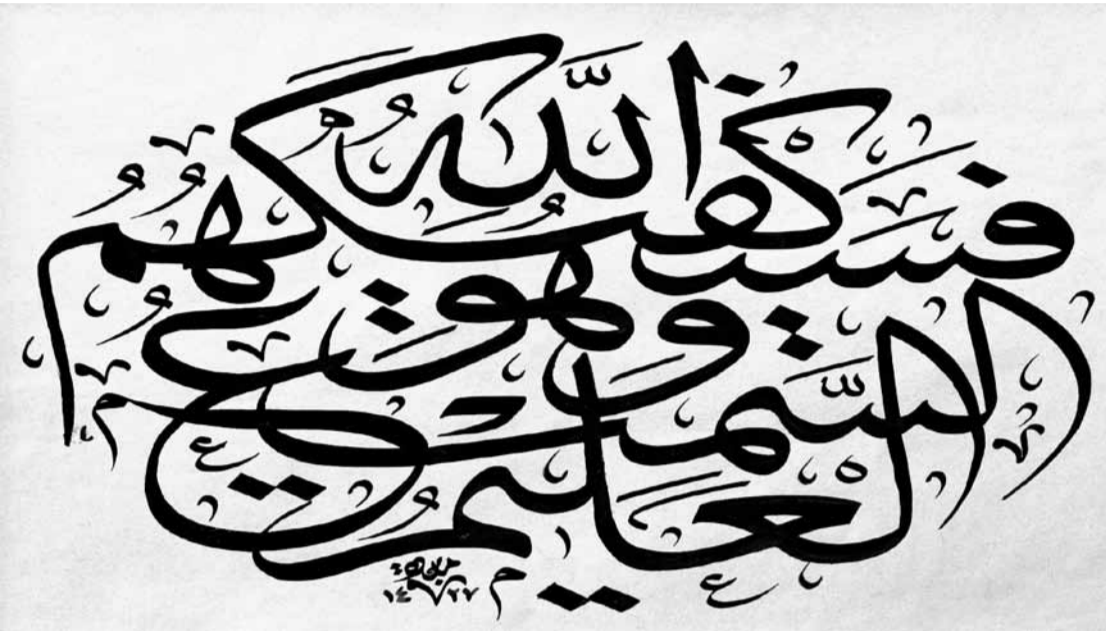 فَسَيَكْفِيكَهُمُ اللَّهُ
وَهُوَ السَّمِيعُ الْعَلِيمُ
١٤٢٧